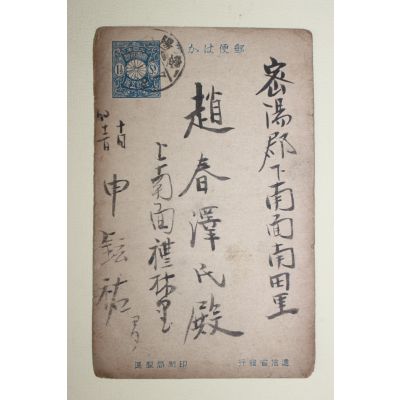 郵便はか
密陽郡下南面南田里
趙春澤氏殿
上南面禮林里
申鉉祐
1½
遞信省發行
印刷局製造